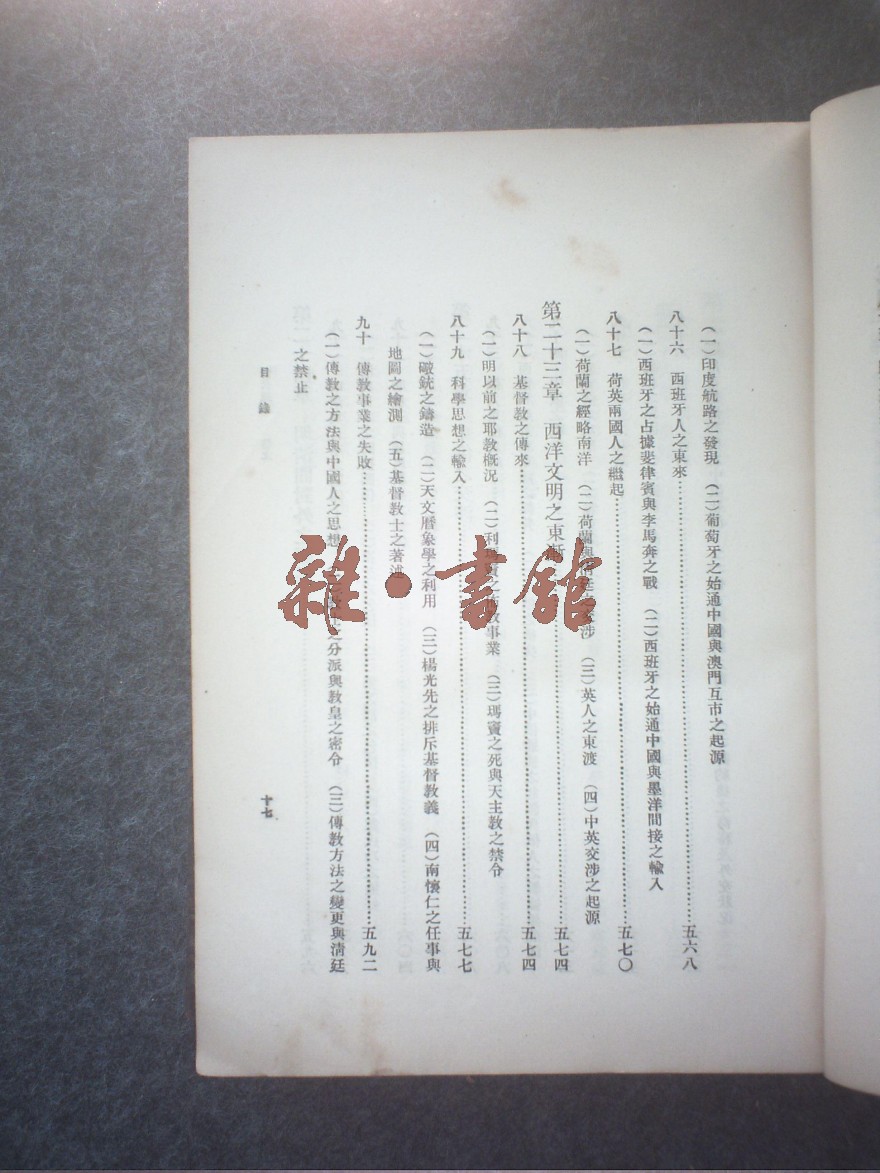 (一)印度航路之發現　(二)葡萄牙之始通中國與澳門互市之起源
八十六　西班牙人之東來……五六八
(一)西班牙之占據斐律賓與李馬奔之戰　(二)西班牙之始通中國與墨洋間接之輸入
八十七　荷英兩國人之繼起……五七〇
(一)荷蘭之經略南洋　(二)荷蘭與涉　(三)英人之東渡　(四)中英交涉之起源
第二十三章　西洋文明之東漸……五七四
八十八　基督教之傳來……五七四
(一)明以前之耶教概況　(二)利瑪竇之事業　(三)瑪竇之死與天主教之禁令
八十九　科學思想之輸入……五七七
(一)礮銃之鑄造　(二)天文曆象學之利用　(三)楊光先之排斥基督教義　(四)南懷仁之任事與
地圖之繪測　(五)基督教士之著述
九十　傳教事業之失敗……五九二
(一)傳教之方法與中國人之思想　之分派與教皇之密令　(三)傳教方法之變更與清廷
之禁止
目錄
十七
雜·書館